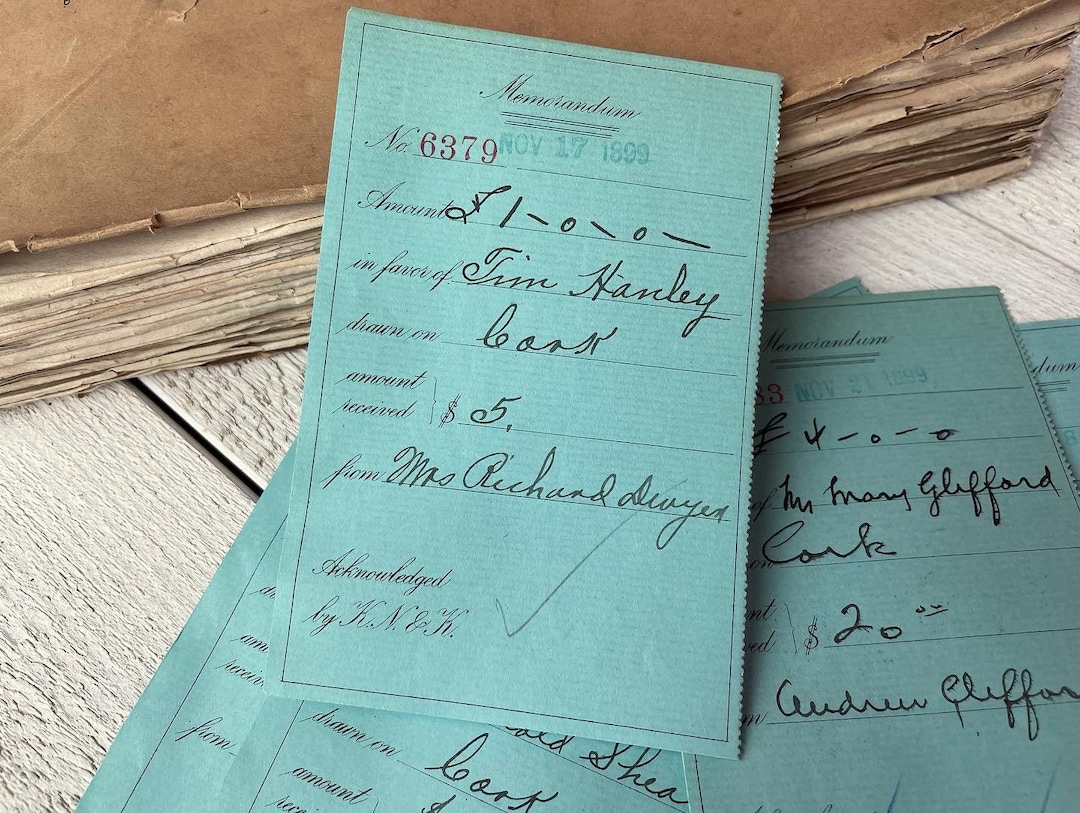 Memorandum
No. 6379 NOV 17 1899
Amount £ 1-0-0-
in favor of Tim Hanley
drawn on Cork
amount
received } $ 5.
from Mrs Richard Dwyer
Acknowledged
by K.N.&K.
Memorandum
83 NOV 21 1899
£ 4-0-0
of Mrs Mary Glifford
on Cork
$ 20 00
Andrew Gliffor
dum
drawn on Cork
Shea
amount
from